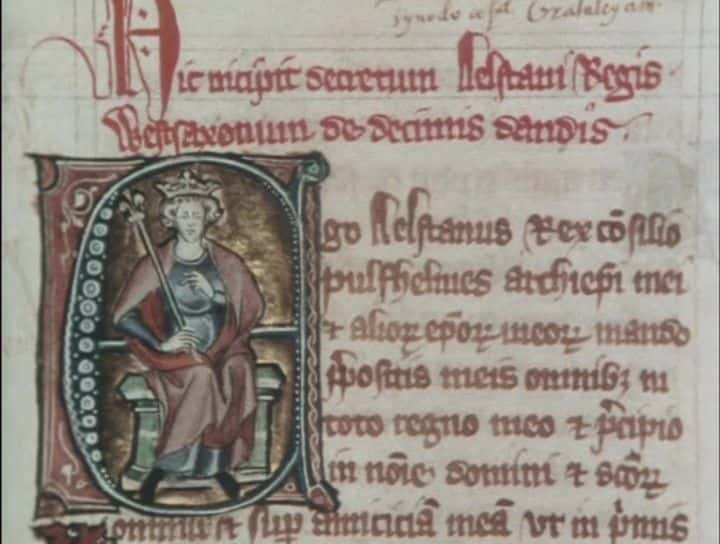 synodo
Hic incipit decretum Aelstani Regis
Westsaxonum de decimis dandis.
Ego Aelstanus Rex cōsilio
pulfhelmes archiep̄i mei
⁊ alioꝝ ep̄oꝝ meoꝝ mando
p̄positis meis omnibꝫ in
toto regno meo ⁊ p̄cipio
in nōie domini ⁊ scōꝝ
omniū et suꝑ amiciciā meā vt in p̄mis